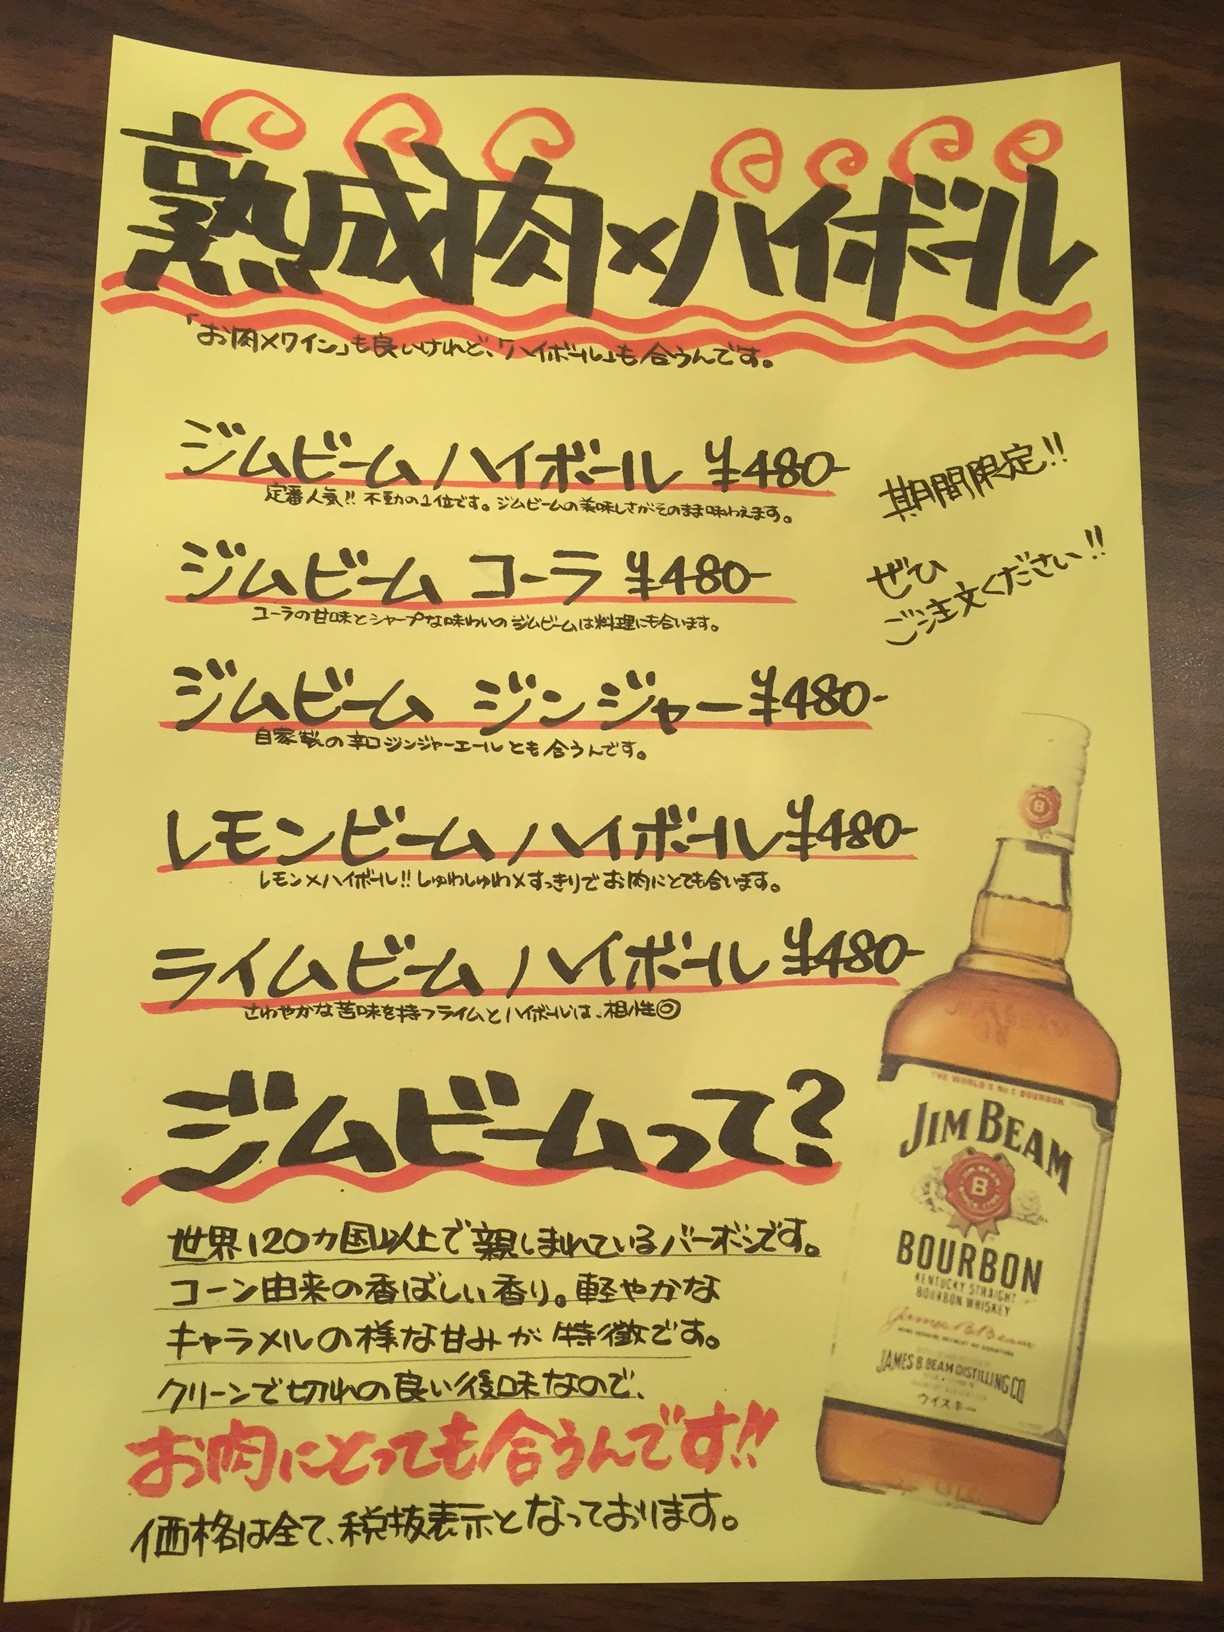 熟成肉×ハイボール
「お肉×ワイン」も良いけれど、「ハイボール」も合うんです。
ジムビーム ハイボール ¥480-
定番人気!! 不動の1位です。ジムビームの美味しさがそのまま味わえます。
期間限定!!
ぜひ
ご注文ください!!
ジムビーム コーラ ¥480-
コーラの甘味とシャープな味わいのジムビームは料理にも合います。
ジムビーム ジンジャー ¥480-
自家製の辛口ジンジャーエールとも合うんです。
レモンビーム ハイボール ¥480-
レモン×ハイボール!! しゅわしゅわ×すっきりでお肉にとても合います。
ライムビーム ハイボール ¥480-
さわやかな苦味を持つライムとハイボールは、相性◎
ジムビームって?
世界120カ国以上で親しまれているバーボンです。
コーン由来の香ばしい香り。軽やかな
キャラメルの様な甘みが特徴です。
クリーンで切れの良い後味なので、
お肉にとっても合うんです!!
価格は全て、税抜表示となっております。
B
THE WORLD'S No.1 BOURBON
JIM BEAM
B
BOURBON
KENTUCKY STRAIGHT
BOURBON WHISKEY
James B. Beam
JAMES B BEAM DISTILLING CO.
ウイスキー